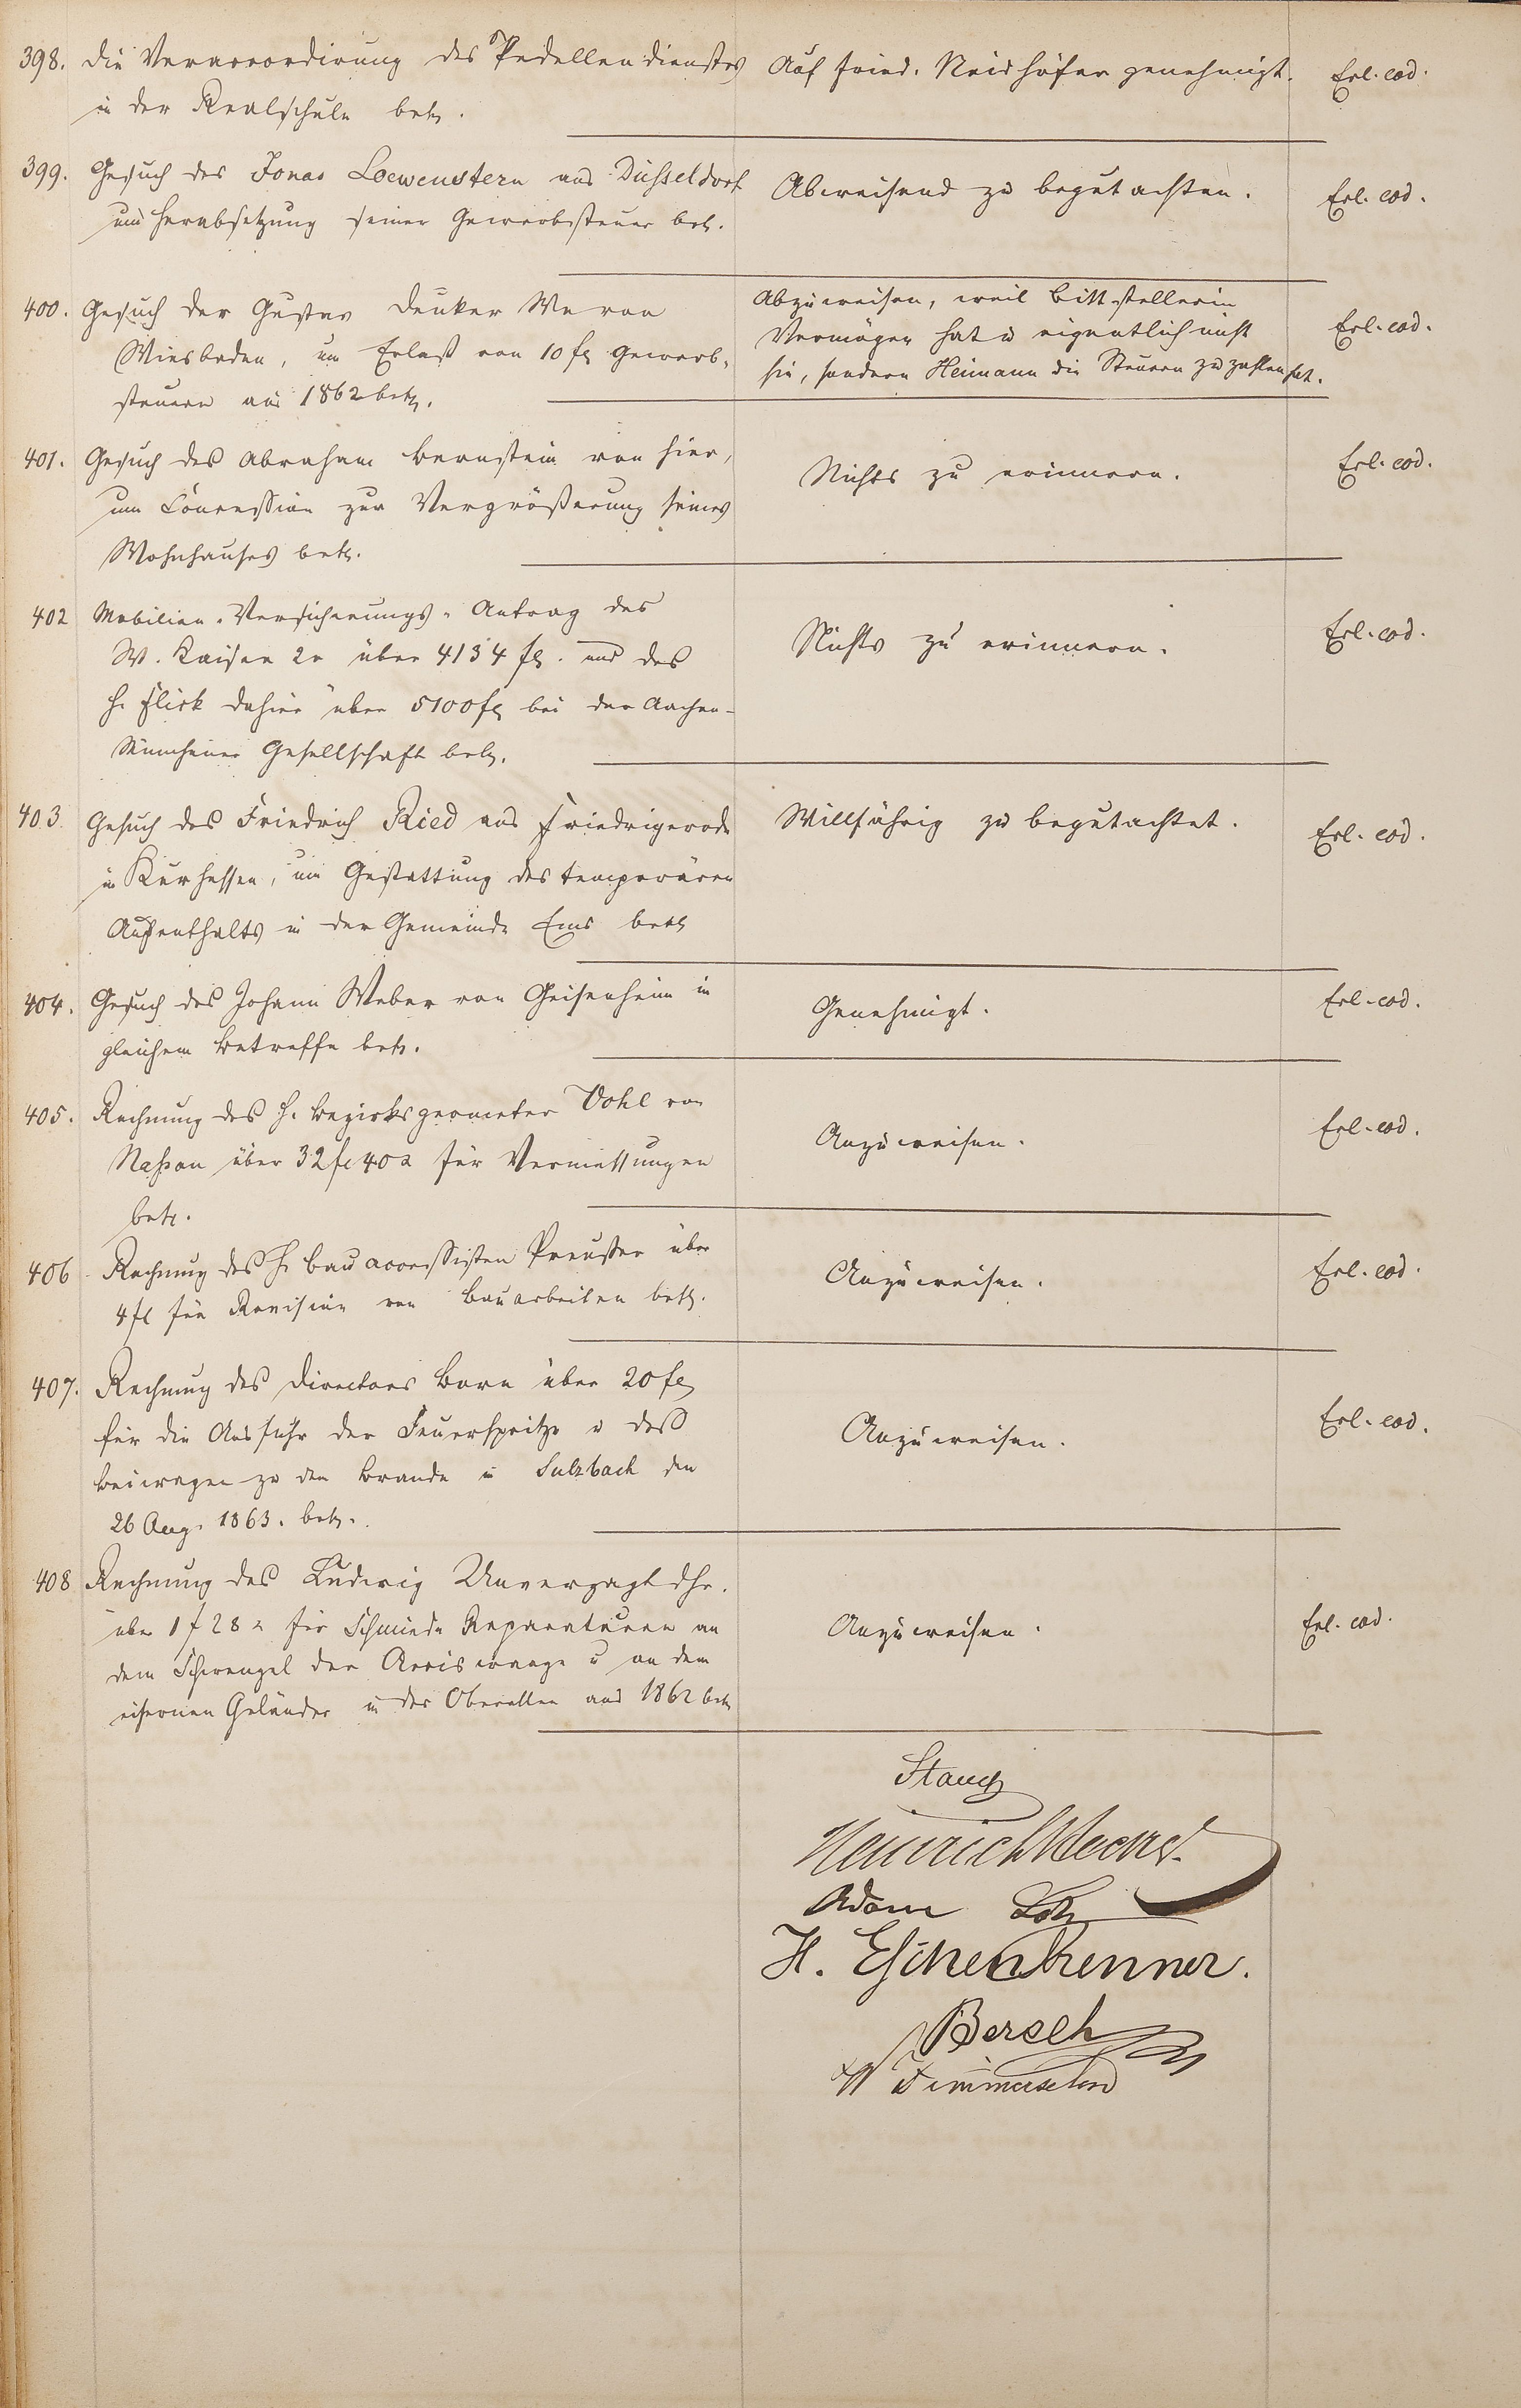 398. Die Veraccordirung des Pedellendienstes
in der Realschule betr.
Auf Fried. Neidhöfer genehmigt.
Erl. eod.
399. Gesuch des Jonas Loewenstern aus Düsseldorf
um Herabsetzung seiner Gewerbsteuer betr.
Abweisend zu begutachten.
Erl. eod.
400. Gesuch der Gustav Deuker We von
Wiesbaden, um Erlaß von 10 fl Gewerb-
steuer aus 1862 betr.
Abzuweisen, weil Bittstellerin
Vermögen hat u eigentlich nicht
sie, sondern Heimann die Steuern zu zahlen hat.
Erl. eod.
401. Gesuch des Abraham Bernstein von hier,
um Concession zur Vergrößerung seines
Wohnhauses betr.
Nichts zu erinnern.
Erl. eod.
402 Mobilien-Versicherungs-Antrag des
W. Kaiser 2r über 4134 fl. und des
H. Flick dahier über 5100 fl bei der Aachen-
Münchener Gesellschaft betr.
Nichts zu erinnern.
Erl. eod.
403. Gesuch des Friedrich Ried aus Friedrigerode
in Kurhessen, um Gestattung des temporären
Aufenthalts in der Gemeinde Ems betr
Willfährig zu begutachtet.
Erl. eod.
404. Gesuch des Johann Weber von Geisenheim in
gleichem Betreffe betr.
Genehmigt.
Erl. eod.
405. Rechnung des H. Bezirksgeometer Vohl von
Naßau über 32 fl 40 x für Vermessungen
betr.
Anzuweisen.
Erl. eod.
406 Rechnung des H. Bauaccessisten Preußer über
4 fl für Revision von Bauarbeiten betr.
Anzuweisen.
Erl. eod.
407. Rechnung des Directors Born über 20 fl
für die Ausfuhr der Feuerspritze u des
Beiwagen zu dem Brande in Sulzbach den
26 Aug. 1863. betr.
Anzuweisen.
Erl. eod.
408 Rechnung des Ludwig Unverzagt dhr.
über 1 f 28 x für Schmiede Reparaturen an
dem Schwengel der Acciswaage u an dem
eisernen Geländer in der Oberallee aus 1862 betr
Anzuweisen.
Erl. eod.
Stauch
Heinrich
Adam
H. Eschenbrenner.
Bersch
W Zimmerschied